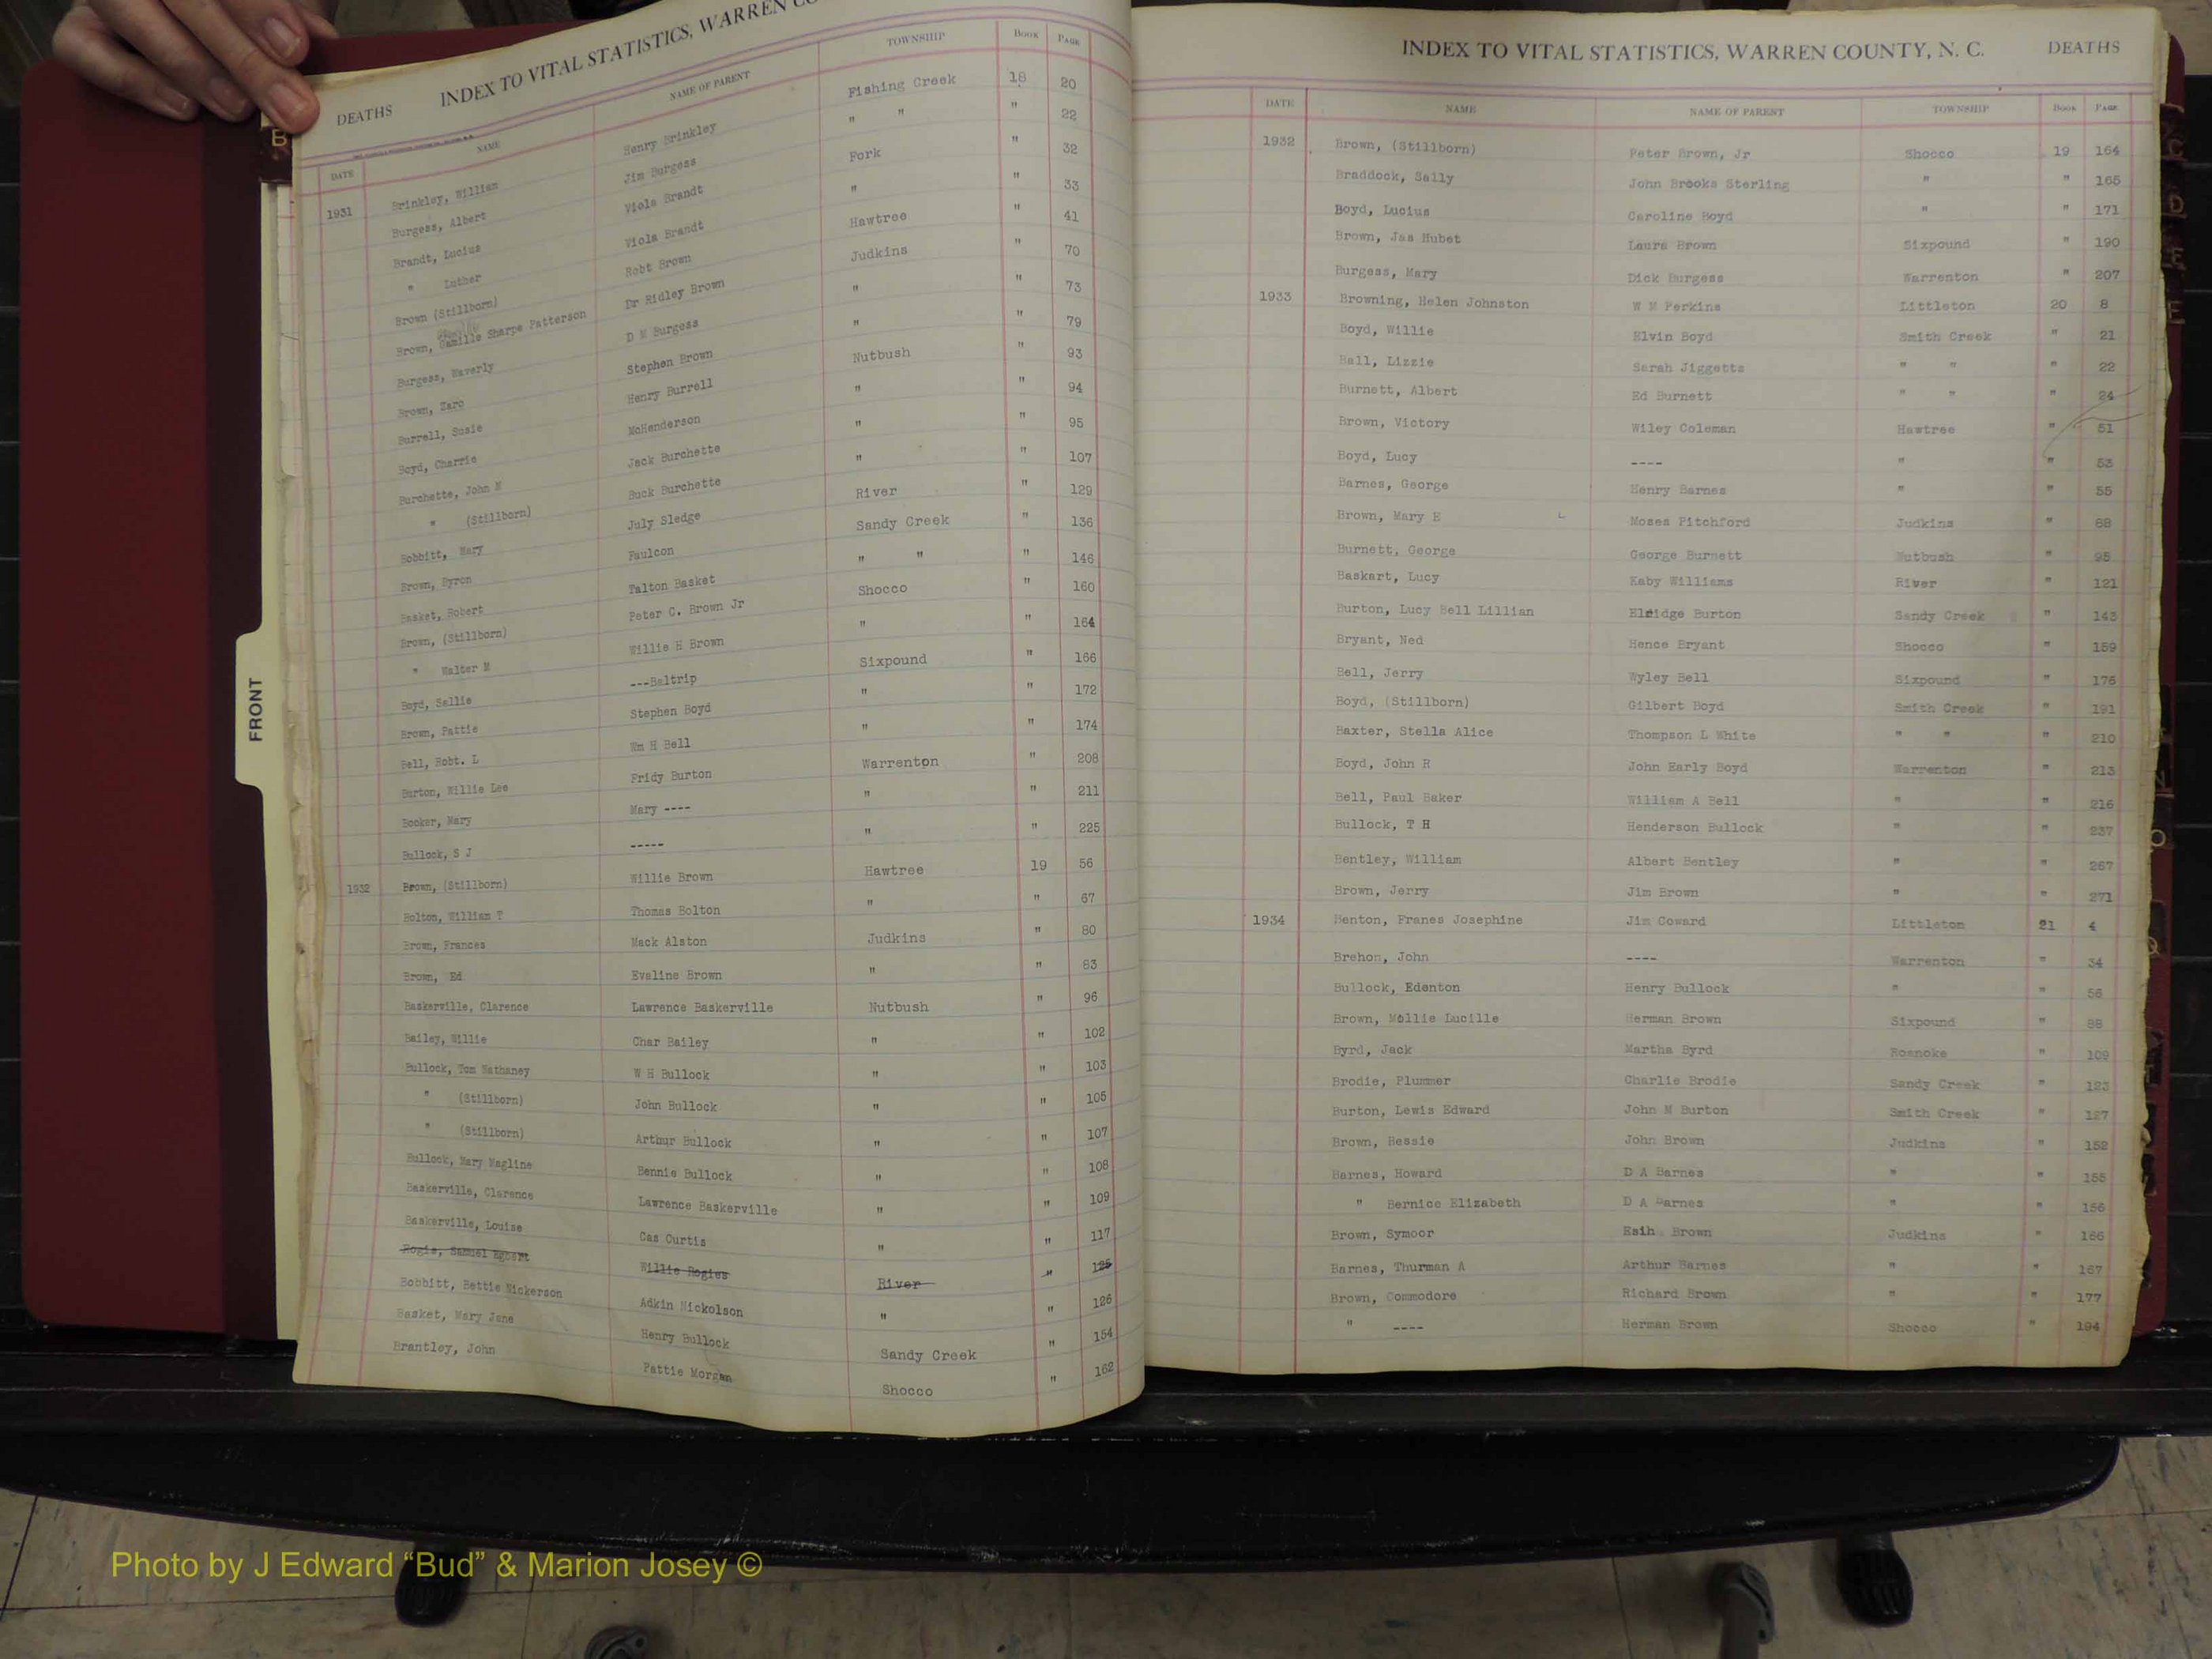 DEATHS INDEX TO VITAL STATISTICS, WARREN CO
DATE NAME NAME OF PARENT TOWNSHIP BOOK PAGE
1931 Brinkley, William Henry Brinkley Fishing Creek 18 20
Burgess, Albert Jim Burgess " " " 22
Brandt, Lucius Viola Brandt Fork " 32
" Luther Viola Brandt " " 33
Brown (Stillborn) Robt Brown Hawtree " 41
Brown, Camille Sharpe Patterson Dr Ridley Brown Judkins " 70
Burgess, Waverly D M Burgess " " 73
Brown, Zaro Stephen Brown " " 79
Burrell, Susie Henry Burrell Nutbush " 93
Boyd, Charrie McHenderson " " 94
Burchette, John M Jack Burchette " " 95
" (Stillborn) Buck Burchette " " 107
Bobbitt, Mary July Sledge River " 129
Brown, Byron Faulcon Sandy Creek " 136
Basket, Robert Talton Basket " " " 146
Brown, (Stillborn) Peter C. Brown Jr Shocco " 160
" Walter M Willie H Brown " " 164
Boyd, Sallie ---Baltrip Sixpound " 166
Brown, Pattie Stephen Boyd " " 172
Bell, Robt. L Wm H Bell " " 174
Burton, Willie Lee Fridy Burton Warrenton " 208
Booker, Mary Mary ---- " " 211
Bullock, S J ----- " " 225
1932 Brown, (Stillborn) Willie Brown Hawtree 19 56
Bolton, William T Thomas Bolton " " 67
Brown, Frances Mack Alston Judkins " 80
Brown, Ed Eveline Brown " " 83
Baskerville, Clarence Lawrence Baskerville Nutbush " 96
Bailey, Willie Char Bailey " " 102
Bullock, Tom Nathaney W H Bullock " " 103
" (Stillborn) John Bullock " " 105
" (Stillborn) Arthur Bullock " " 107
Bullock, Mary Magline Bennie Bullock " " 108
Baskerville, Clarence Lawrence Baskerville " " 109
Baskerville, Louise Cas Curtis " " 117
Rogis, Samuel Egbert Willie Rogies River " 125
Bobbitt, Bettie Nickerson Adkin Nickolson " " 126
Basket, Mary Jane Henry Bullock Sandy Creek " 154
Brantley, John Pattie Morgan Shocco " 162
INDEX TO VITAL STATISTICS, WARREN COUNTY, N. C. DEATHS
DATE NAME NAME OF PARENT TOWNSHIP BOOK PAGE
1932 Brown, (Stillborn) Peter Brown, Jr Shocco 19 164
Braddock, Sally John Brooks Sterling " " 165
Boyd, Lucius Caroline Boyd " " 171
Brown, Jas Hubet Laura Brown Sixpound " 190
Burgess, Mary Dick Burgess Warrenton " 207
1933 Browning, Helen Johnston W M Perkins Littleton 20 8
Boyd, Willie Elvin Boyd Smith Creek " 21
Ball, Lizzie Sarah Jiggetts " " " 22
Burnett, Albert Ed Burnett " " " 24
Brown, Victory Wiley Coleman Hawtree " 51
Boyd, Lucy ---- " " 53
Barnes, George Henry Barnes " " 55
Brown, Mary E Moses Pitchford Judkins " 68
Burnett, George George Burnett Nutbush " 95
Baskart, Lucy Kaby Williams River " 121
Burton, Lucy Bell Lillian Elridge Burton Sandy Creek " 143
Bryant, Ned Hence Bryant Shocco " 159
Bell, Jerry Wyley Bell Sixpound " 176
Boyd, (Stillborn) Gilbert Boyd Smith Creek " 191
Baxter, Stella Alice Thompson L White " " " 210
Boyd, John R John Early Boyd Warrenton " 213
Bell, Paul Baker William A Bell " " 216
Bullock, T H Henderson Bullock " " 237
Bentley, William Albert Bentley " " 267
Brown, Jerry Jim Brown " " 271
1934 Benton, Franes Josephine Jim Coward Littleton 21 4
Brehon, John ---- Warrenton " 34
Bullock, Edenton Henry Bullock " " 56
Brown, Mollie Lucille Herman Brown Sixpound " 88
Byrd, Jack Martha Byrd Roanoke " 109
Brodie, Plummer Charlie Brodie Sandy Creek " 123
Burton, Lewis Edward John M Burton Smith Creek " 127
Brown, Bessie John Brown Judkins " 152
Barnes, Howard D A Barnes " " 155
" Bernice Elizabeth D A Barnes " " 156
Brown, Symoor Esih Brown Judkins " 166
Barnes, Thurman A Arthur Barnes " " 167
Brown, Commodore Richard Brown " " 177
" ---- Herman Brown Shocco " 194
FRONT
B
Photo by J Edward “Bud” & Marion Josey ©